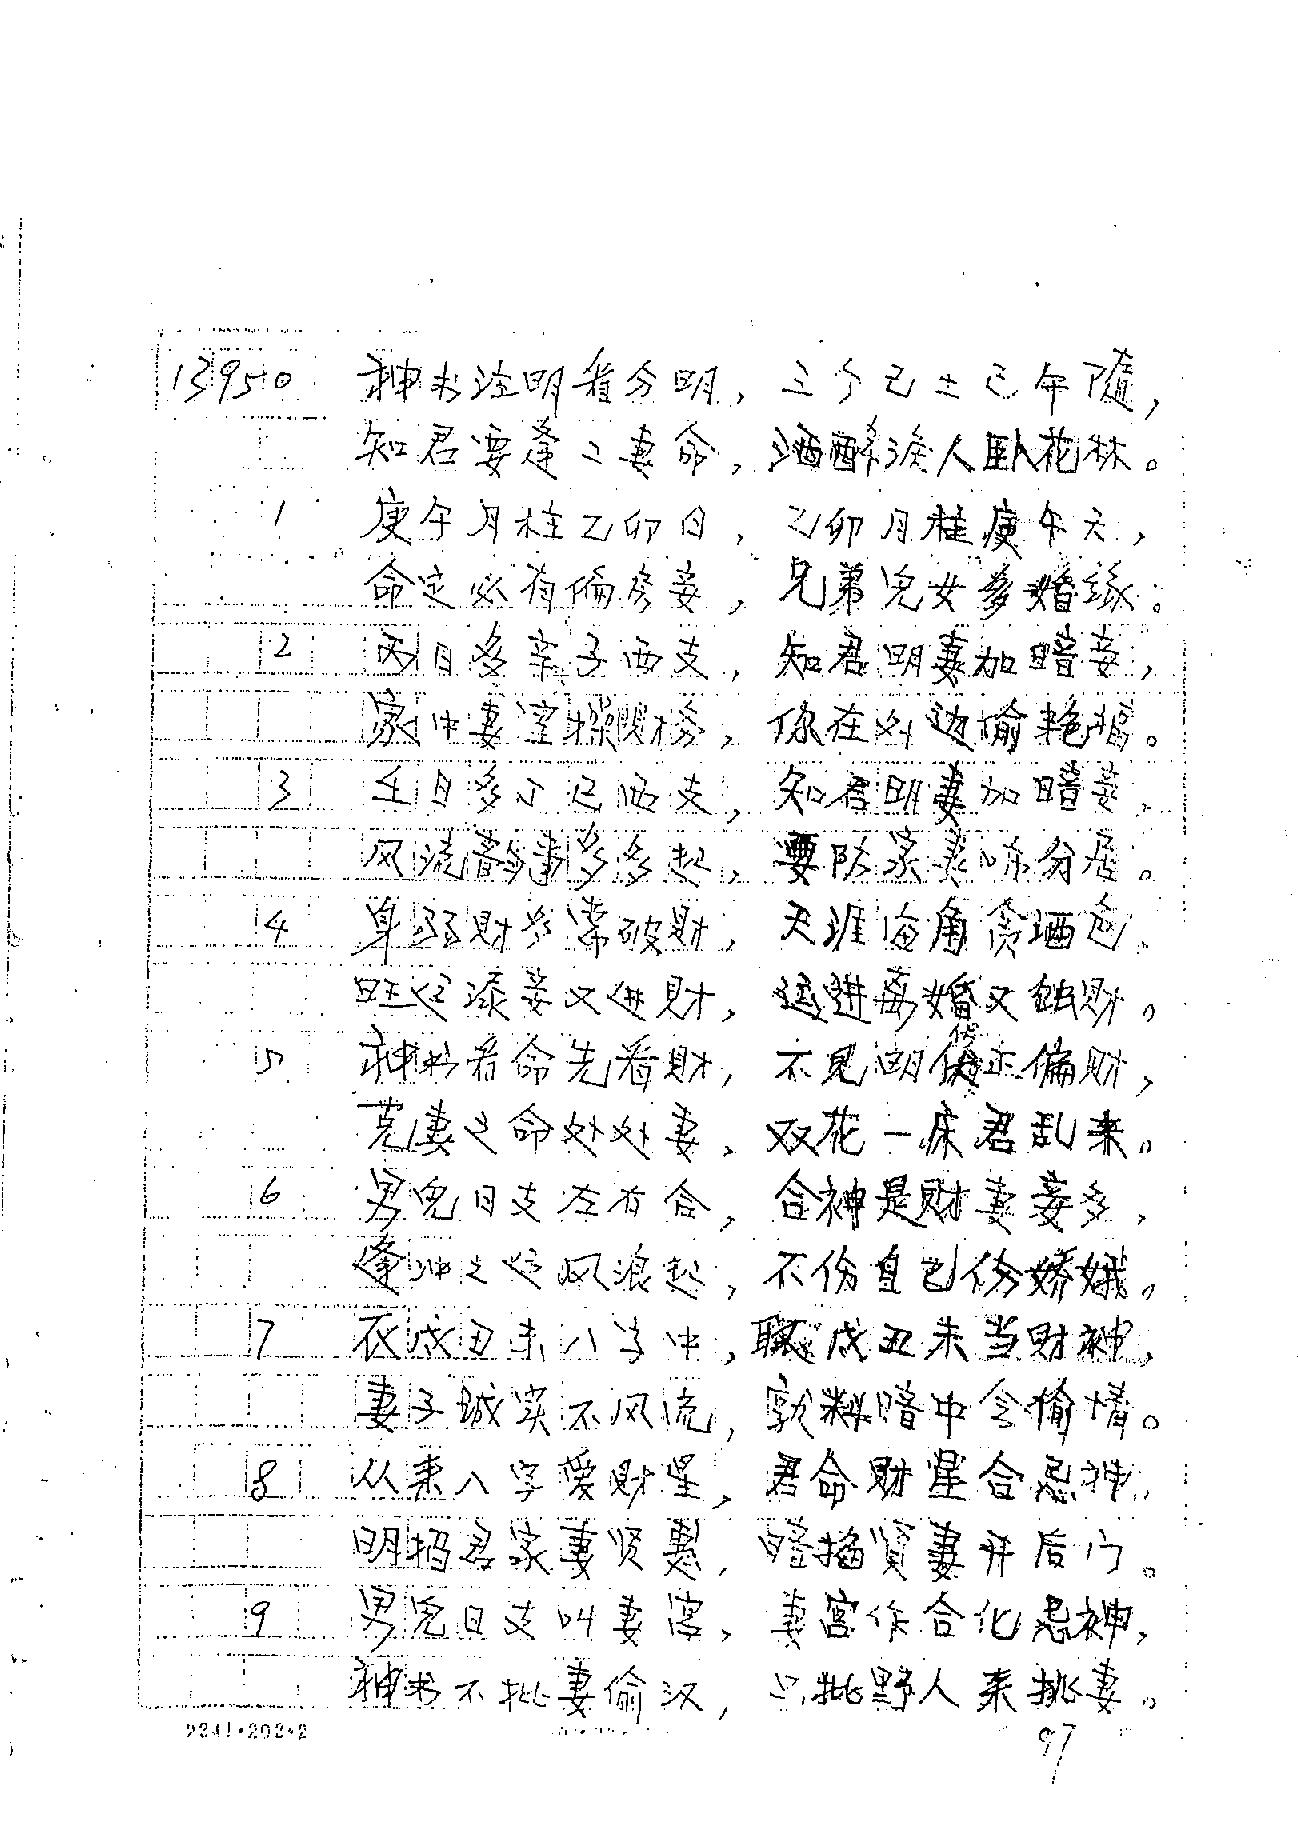 13950 神书注明看分明，三个己土己午随，
知君要逢二妻命，洒醉后人卧花林。
1 庚午月柱乙卯日，乙卯月柱庚午天，
命定必有偏房妾，兄弟儿女多婚缘。
2 丙日多辛子酉支，知君明妻加暗妾，
家中妻室操财务，你在外边偷艳福。
3 壬日多丁巳酉支，知君明妻加暗妾，
风流韵事多多起，要防家妻吵分居。
4 身弱财多常破财，天涯海角贪酒色，
旺运添妾又进财，运进离婚又蚀财。
5 神书看命先看财，不见明 正偏财，
克妻之命处处妻，双花一床君乱来。
6 男儿日支左右合，合神是财妻妾多，
逢冲之运风浪起，不伤自己伤娇娥。
7 衣戌丑未八字中，联戌丑未当财神，
妻子诚实不风流，孰料暗中会偷情。
8 从来八字爱财星，君命财星合忌神，
明招君家妻贤惠，暗描贤妻开后门。
9 男儿日支叫妻宫，妻宫作合化忌神，
神书不批妻偷汉，只批野人来挑妻。
9241·202·2
97